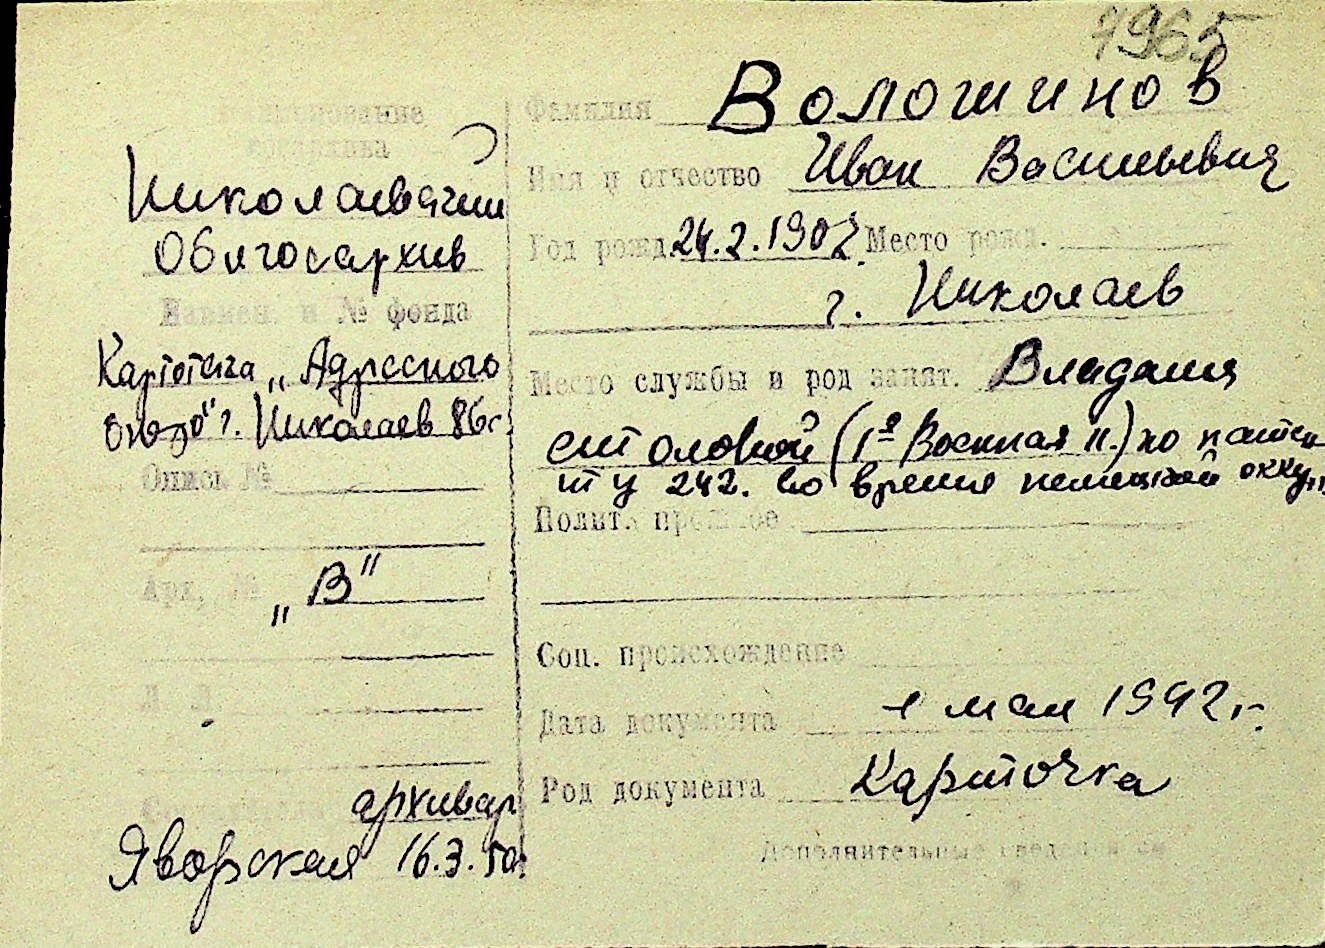 7965
Наименование
госархива
Николаевский
Облгосархив
Наимен. и № фонда
Картотека „Адресного
г. Николаев 86г.
Опись №
Арх, №
„В"
архивар
Яворская 16.3.50г.
Фамилия Волошинов
Имя и отчество Иван Васильевич
Год рожд. 24.2.1907 Место рожд.
г. Николаев
Место службы и род занят. Владелец
столовой (1я Военная н.) по патен
ту 242. во время немецкой оккуп.
Полит. прошлое
Соц. происхождение
Дата документа 1 мая 1942г.
Род документа Карточка
Дополнительные сведения см